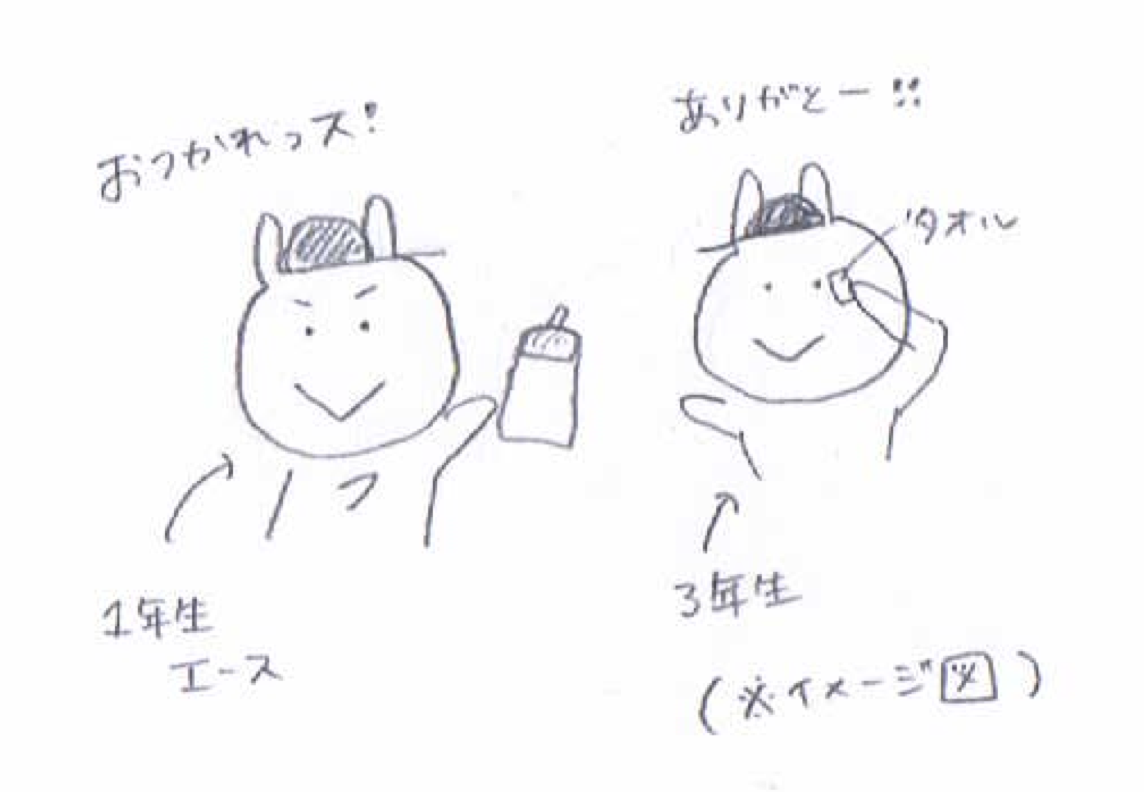 おつかれっス!
ありがとー!!
タオル
1年生
エース
3年生
(※イメージ図)